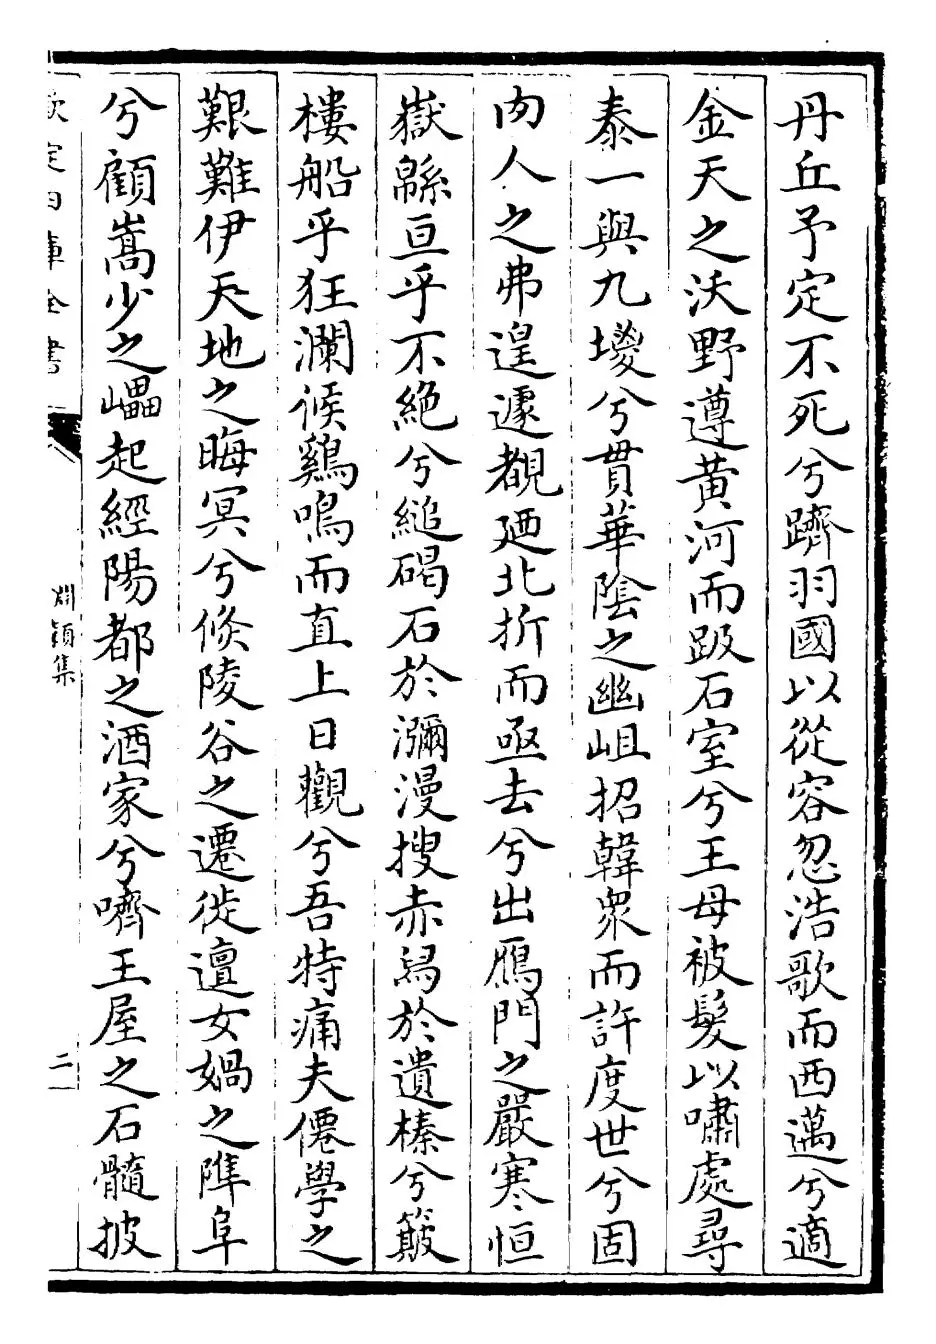 丹丘予定不死兮躋羽國以從容忽浩歌而西邁兮適
金天之沃野遵黄河而趿石室兮王母被髮以嘯處尋
泰一與九堫兮貫華陰之幽岨招韓衆而許度世兮固
内人之弗遑遽覩廼北折而亟去兮出鴈門之嚴寒恒
嶽緜亘乎不絶兮縋碣石於瀰漫搜赤舄於遺榛兮簸
樓船乎狂瀾候鷄鳴而直上日觀兮吾特痛夫僊學之
艱難伊天地之晦冥兮倐陵谷之遷徙邅女媧之陮阜
兮顧嵩少之㠥起經陽都之酒家兮嚌王屋之石髓披
欽定四庫全書
淵穎集
二